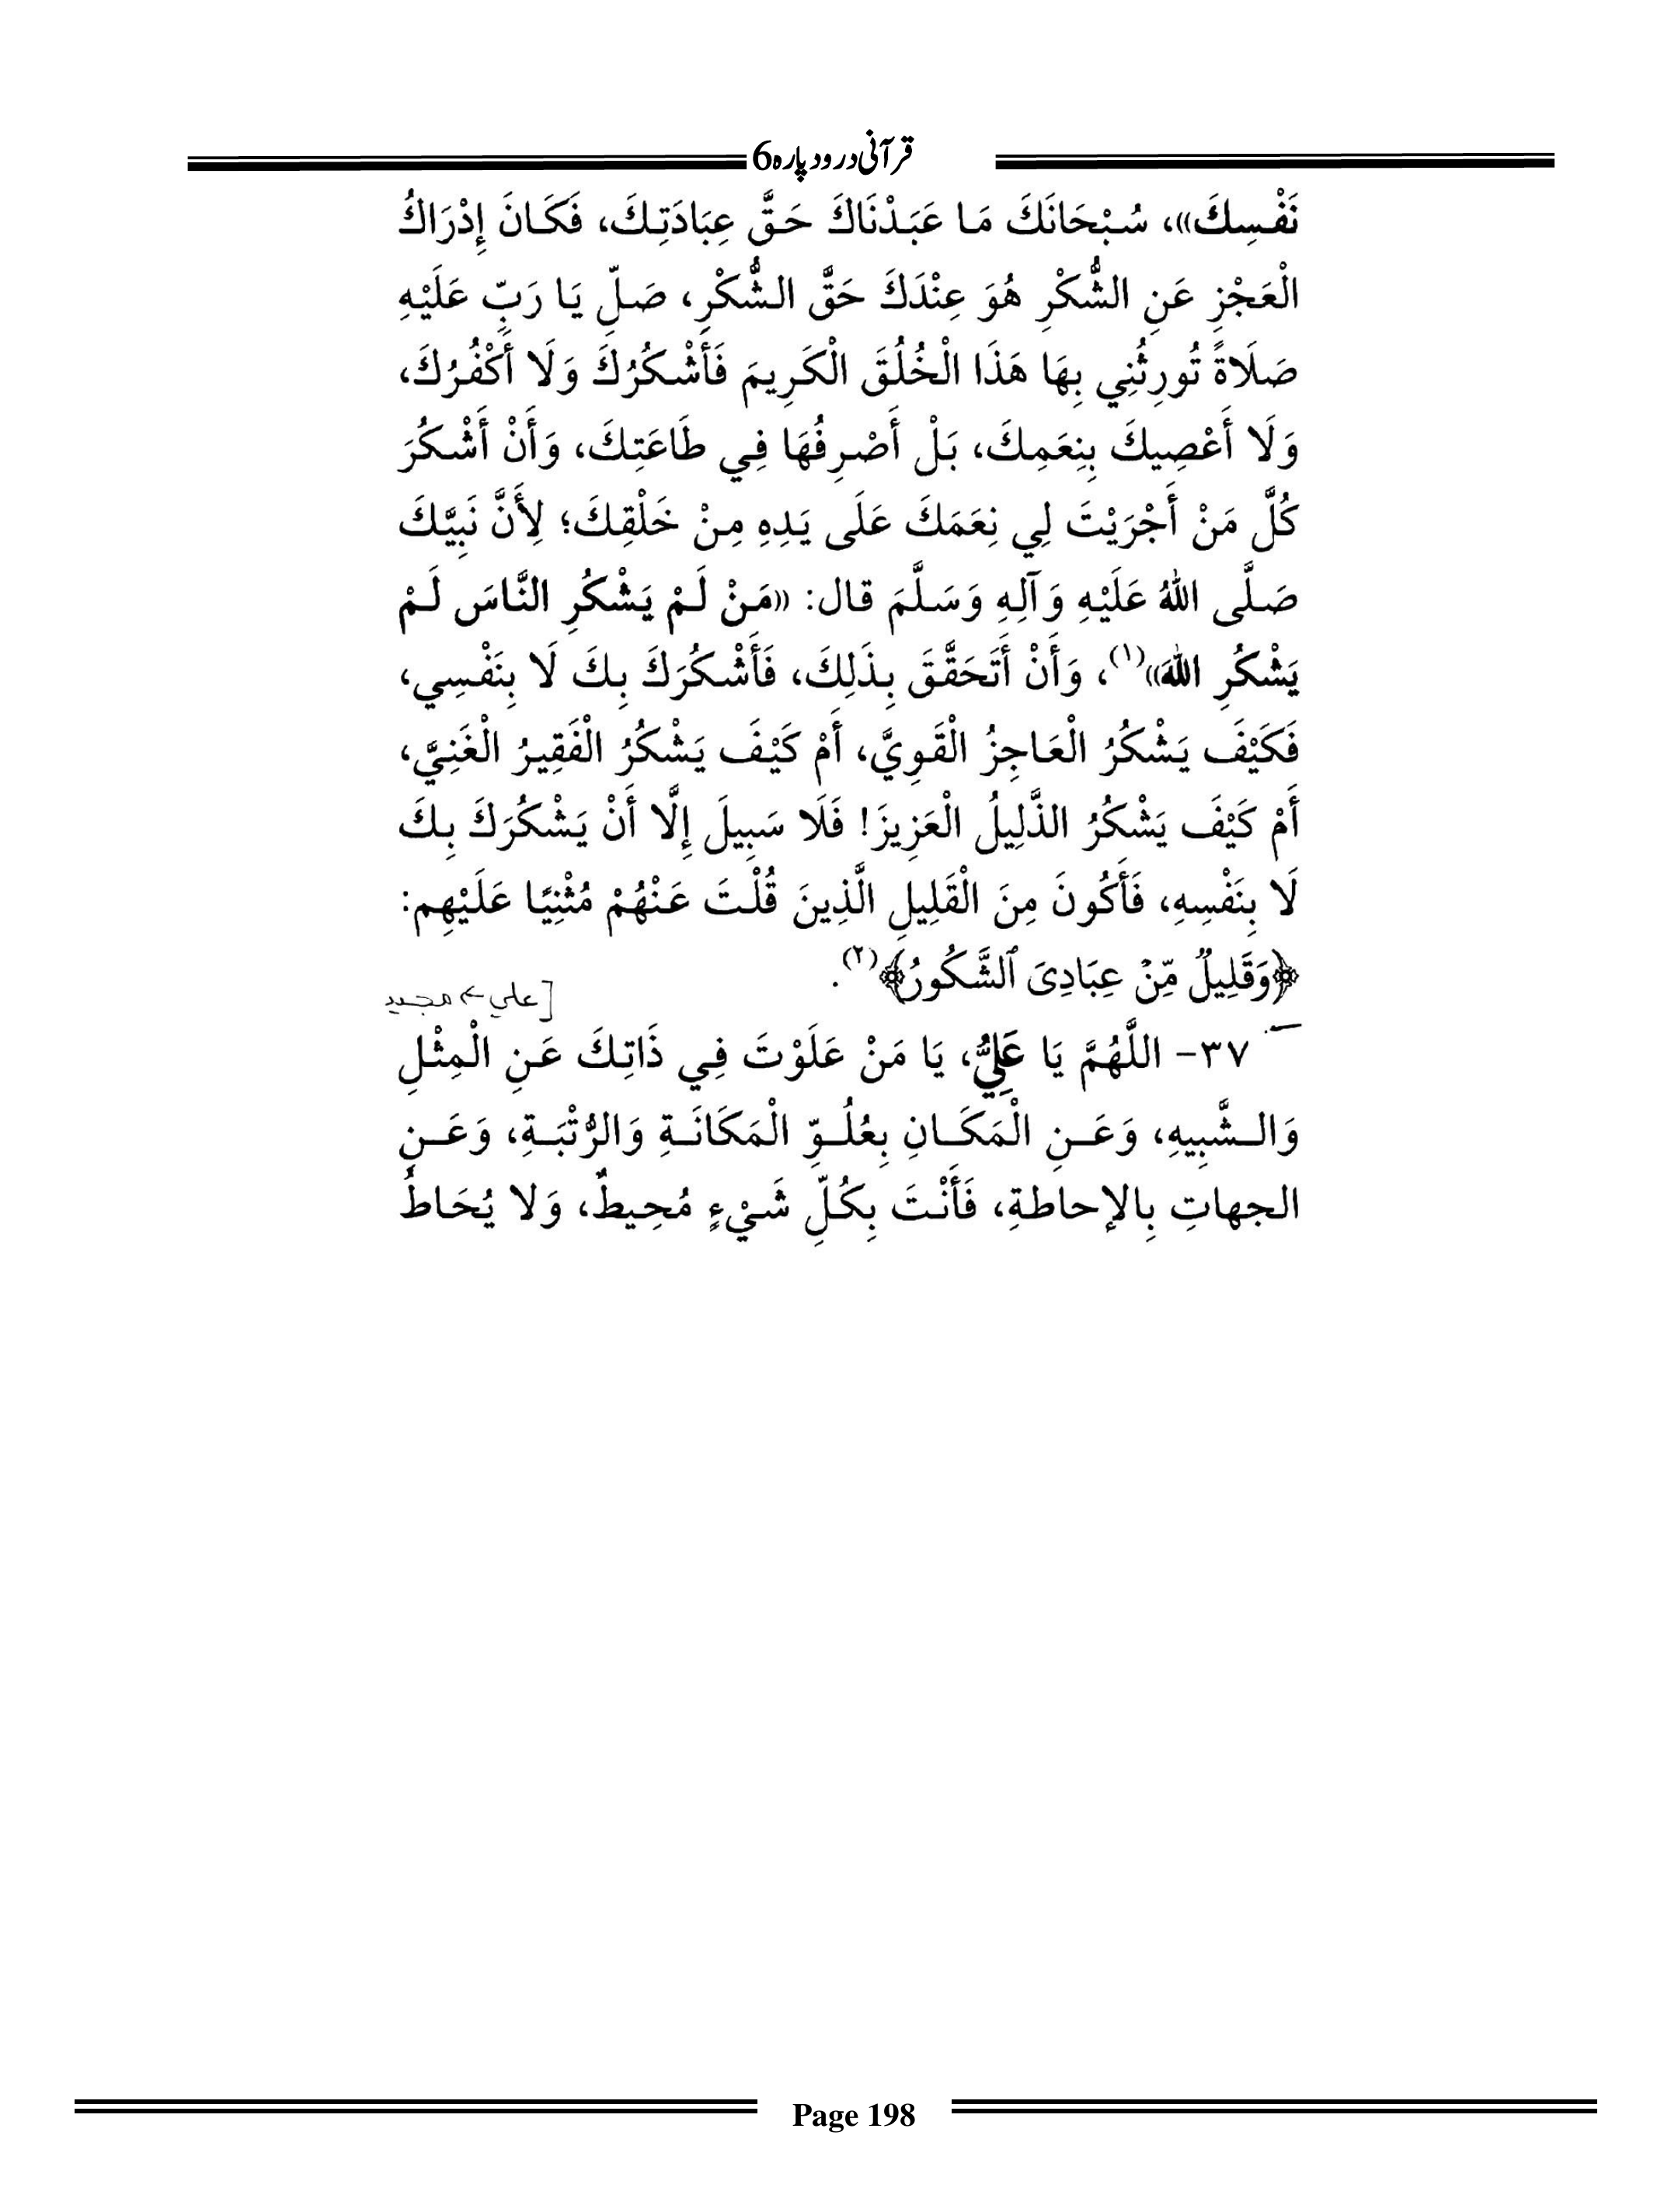 قرآنی درود پارہ 6
نَفْسِكَ»، سُبْحَانَكَ مَا عَبَدْنَاكَ حَقَّ عِبَادَتِكَ، فَكَانَ إِدْرَاكُ
الْعَجْزِ عَنِ الشُّكْرِ هُوَ عِنْدَكَ حَقَّ الشُّكْرِ، صَلِّ يَا رَبِّ عَلَيْهِ
صَلَاةً تُورِثُنِي بِهَا هَذَا الْخُلُقَ الْكَرِيمَ فَأَشْكُرُكَ وَلَا أَكْفُرُكَ،
وَلَا أَعْصِيكَ بِنِعَمِكَ، بَلْ أَصْرِفُهَا فِي طَاعَتِكَ، وَأَنْ أَشْكُرَ
كُلَّ مَنْ أَجْرَيْتَ لِي نِعَمَكَ عَلَى يَدِهِ مِنْ خَلْقِكَ؛ لِأَنَّ نَبِيَّكَ
صَلَّى اللهُ عَلَيْهِ وَآلِهِ وَسَلَّمَ قال: «مَنْ لَمْ يَشْكُرِ النَّاسَ لَمْ
يَشْكُرِ اللهَ»(١)، وَأَنْ أَتَحَقَّقَ بِذَلِكَ، فَأَشْكُرَكَ بِكَ لَا بِنَفْسِي،
فَكَيْفَ يَشْكُرُ الْعَاجِزُ الْقَوِيَّ، أَمْ كَيْفَ يَشْكُرُ الْفَقِيرُ الْغَنِيَّ،
أَمْ كَيْفَ يَشْكُرُ الذَّلِيلُ الْعَزِيزَ! فَلَا سَبِيلَ إِلَّا أَنْ يَشْكُرَكَ بِكَ
لَا بِنَفْسِهِ، فَأَكُونَ مِنَ الْقَلِيلِ الَّذِينَ قُلْتَ عَنْهُمْ مُثْنِيًا عَلَيْهِم:
﴿وَقَلِيلٌ مِّنْ عِبَادِىَ ٱلشَّكُورُ﴾(٢).
[علي ← مجيد
٣٧- اللَّهُمَّ يَا عَلِيُّ، يَا مَنْ عَلَوْتَ فِي ذَاتِكَ عَنِ الْمِثْلِ
وَالشَّبِيهِ، وَعَنِ الْمَكَانِ بِعُلُوِّ الْمَكَانَةِ وَالرُّتْبَةِ، وَعَنِ
الجهاتِ بِالإحاطةِ، فَأَنْتَ بِكُلِّ شَيْءٍ مُحِيطٌ، وَلا يُحَاطُ
Page 198